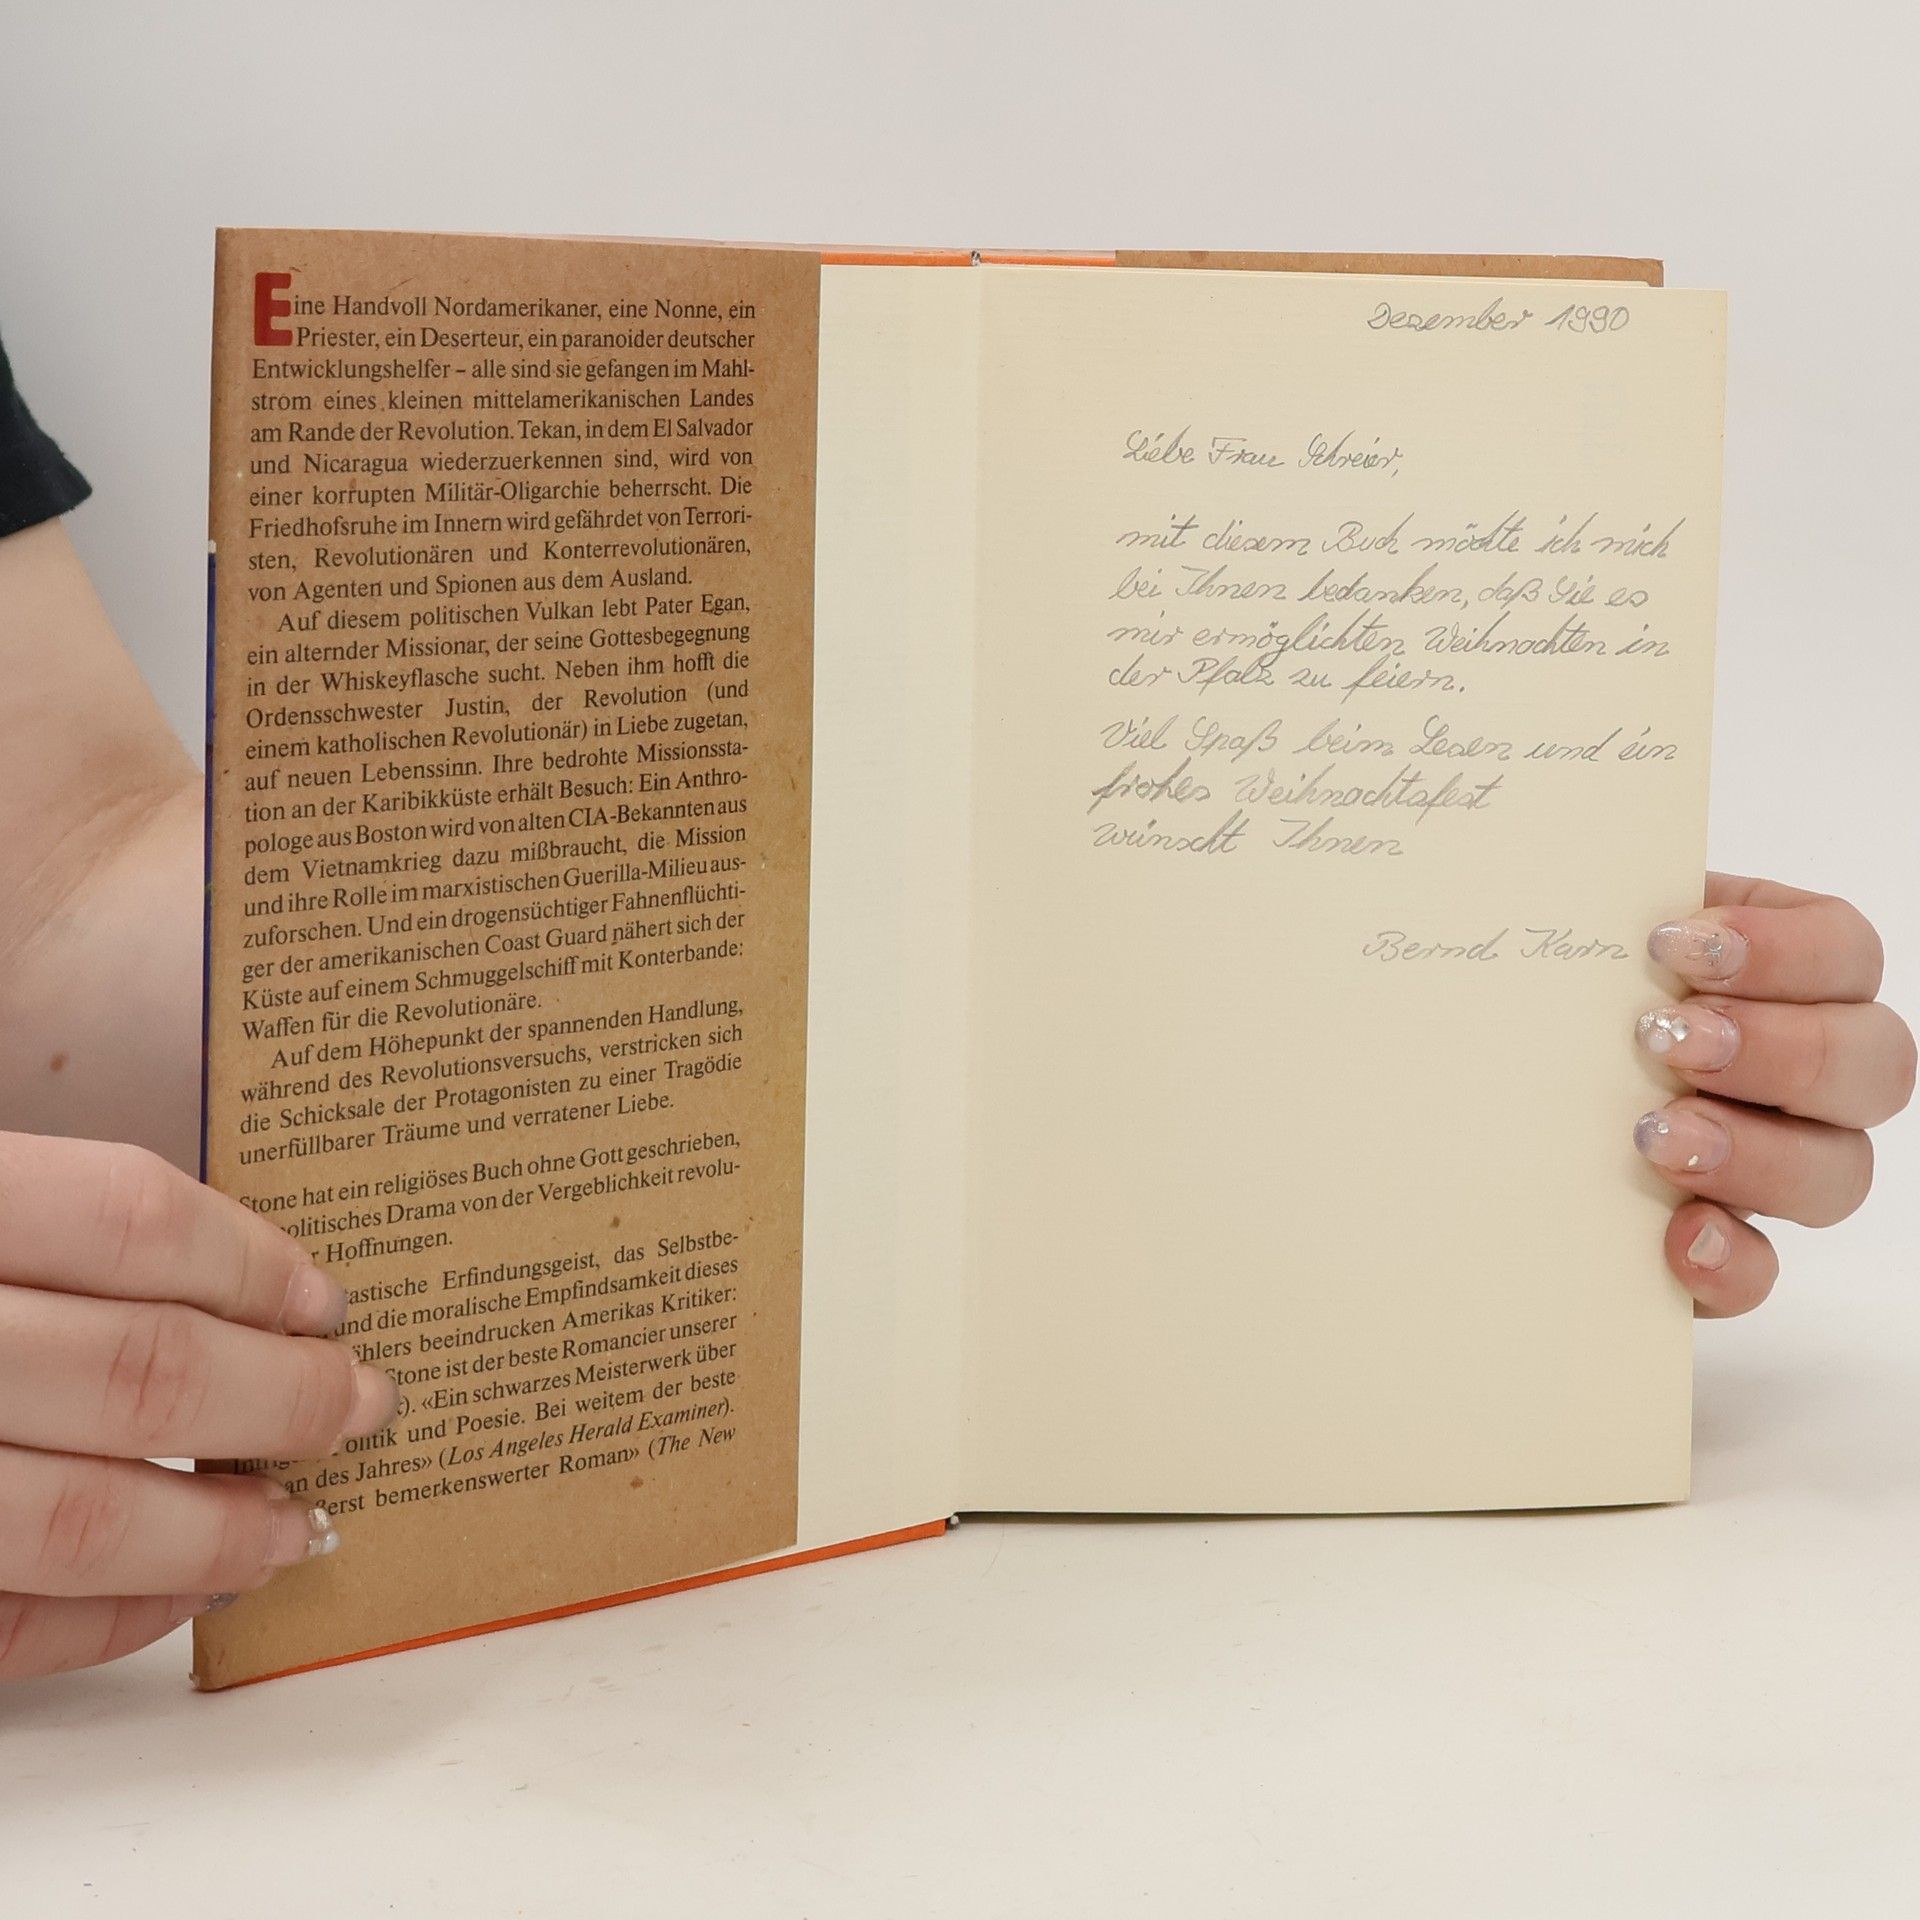 Eine Handvoll Nordamerikaner, eine Nonne, ein
Priester, ein Deserteur, ein paranoider deutscher
Entwicklungshelfer – alle sind sie gefangen im Mahl-
strom eines kleinen mittelamerikanischen Landes
am Rande der Revolution. Tekan, in dem El Salvador
und Nicaragua wiederzuerkennen sind, wird von
einer korrupten Militär-Oligarchie beherrscht. Die
Friedhofsruhe im Innern wird gefährdet von Terrori-
sten, Revolutionären und Konterrevolutionären,
von Agenten und Spionen aus dem Ausland.
Auf diesem politischen Vulkan lebt Pater Egan,
ein alternder Missionar, der seine Gottesbegegnung
in der Whiskeyflasche sucht. Neben ihm hofft die
Ordensschwester Justin, der Revolution (und
einem katholischen Revolutionär) in Liebe zugetan,
auf neuen Lebenssinn. Ihre bedrohte Missionssta-
tion an der Karibikküste erhält Besuch: Ein Anthro-
pologe aus Boston wird von alten CIA-Bekannten aus
dem Vietnamkrieg dazu mißbraucht, die Mission
und ihre Rolle im marxistischen Guerilla-Milieu aus-
zuforschen. Und ein drogensüchtiger Fahnenflüchti-
ger der amerikanischen Coast Guard nähert sich der
Küste auf einem Schmuggelschiff mit Konterbande:
Waffen für die Revolutionäre.
Auf dem Höhepunkt der spannenden Handlung,
während des Revolutionsversuchs, verstricken sich
die Schicksale der Protagonisten zu einer Tragödie
unerfüllbarer Träume und verratener Liebe.
Stone hat ein religiöses Buch ohne Gott geschrieben,
politisches Drama von der Vergeblichkeit revolu-
Hoffnungen.
Erfindungsgeist, das Selbstbe-
und die moralische Empfindsamkeit dieses
beeindrucken Amerikas Kritiker:
Stone ist der beste Romancier unserer
«Ein schwarzes Meisterwerk über
und Poesie. Bei weitem der beste
des Jahres» (Los Angeles Herald Examiner).
bemerkenswerter Roman» (The New
Dezember 1990
Liebe Frau Schreier,
mit diesem Buch möchte ich mich
bei Ihnen bedanken, daß Sie es
mir ermöglichten Weihnachten in
der Pfalz zu feiern.
Viel Spaß beim Lesen und ein
frohes Weihnachtsfest
wünscht Ihnen
Bernd Karn